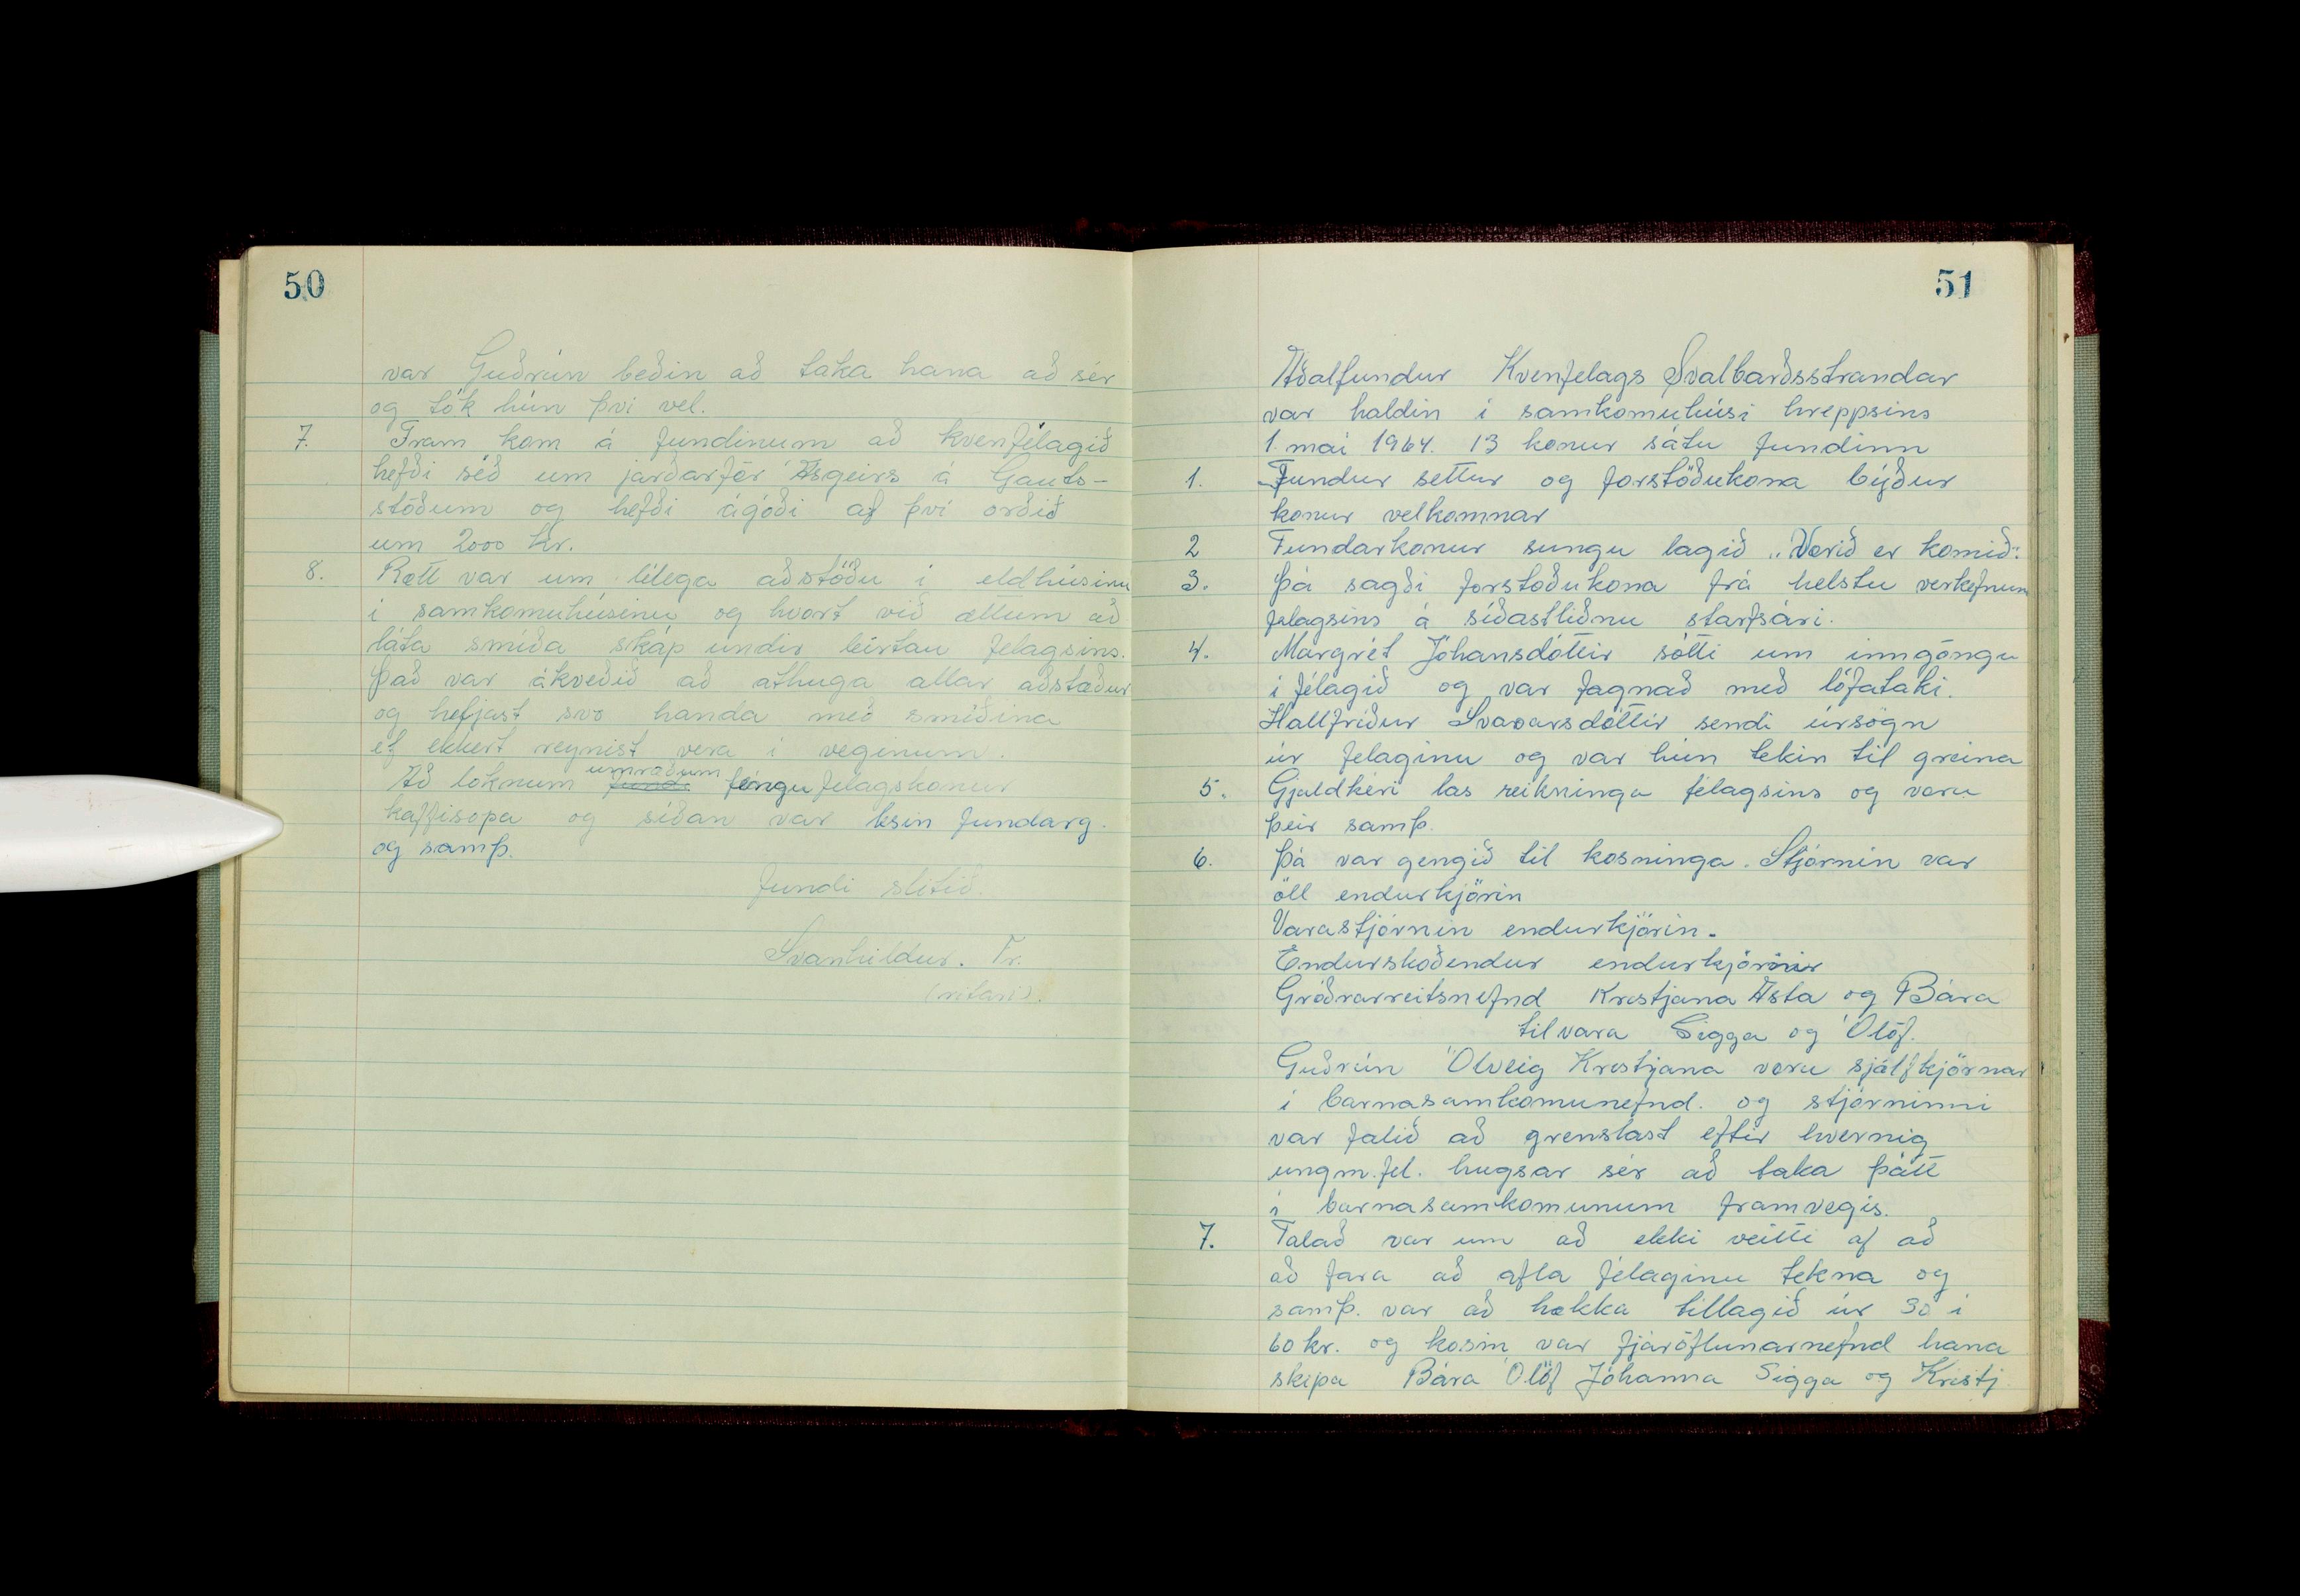 50
var Guðrún beðin að taka hana að sér
og tók hún því vel.
7. Fram kom á fundinum að kvenfélagið
hefði séð um jarðarför Ásgeirs á Gauts-
stöðum og hefði ágóði af því orðið
um 2000 kr.
8. Rætt var um lélega aðstöðu í eldhúsinu
í samkomuhúsinu og hvort við ættum að
láta smíða skáp undir leirtau felagsins.
Það var ákveðið að athuga allar aðstæður
og hefjast svo handa með smíðina
ef ekkert reynist vera í veginum.
Að loknum umræðum fengu felagskonur
kaffisopa og síðan var lesin fundarg.
og samþ.
Fundi slitið.
Svanhildur. Fr.
(ritari).
51
Aðalfundur Kvenfelags Svalbarðsstrandar
var haldin í samkomuhúsi hreppsins
1. maí 1964. 13 konur sátu fundinn
1. Fundur settur og forstöðukona býður
konur velkomnar
2 Fundarkonur sungu lagið „Vorið er komið“.
3. Þá sagði forstoðukona frá helstu verkefnum
felagsins á síðastliðnu starfsári.
4. Margrét Jóhansdóttir sótti um inngöngu
í félagið og var fagnað með lófataki.
Hallfríður Svavarsdóttir sendi úrsögn
úr felaginu og var hún tekin til greina
5. Gjaldkeri las reikninga félagsins og voru
þeir samþ.
6. Þá var gengið til kosninga. Stjórnin var
öll endurkjörin
Varastjórnin endurkjörin.
Endurskoðendur endurkjörnir
Gróðrarreitsnefnd Kristjana Ásta og Bára
til vara Sigga og Ólöf.
Guðrún Ólveig Kristjana voru sjálfkjörnar
í barnasamkomunefnd. og stjórninni
var falið að grenslast eftir hvernig
ungm.fel. hugsar sér að taka þátt
í barnasamkomunum framvegis.
7. Talað var um að ekki veitti af að
að fara að afla félaginu tekna og
samþ. var að hækka tillagið úr 30 í
60 kr. og kosin var fjáröflunarnefnd hana
skipa Bára Ólöf Jóhanna Sigga og Kristj